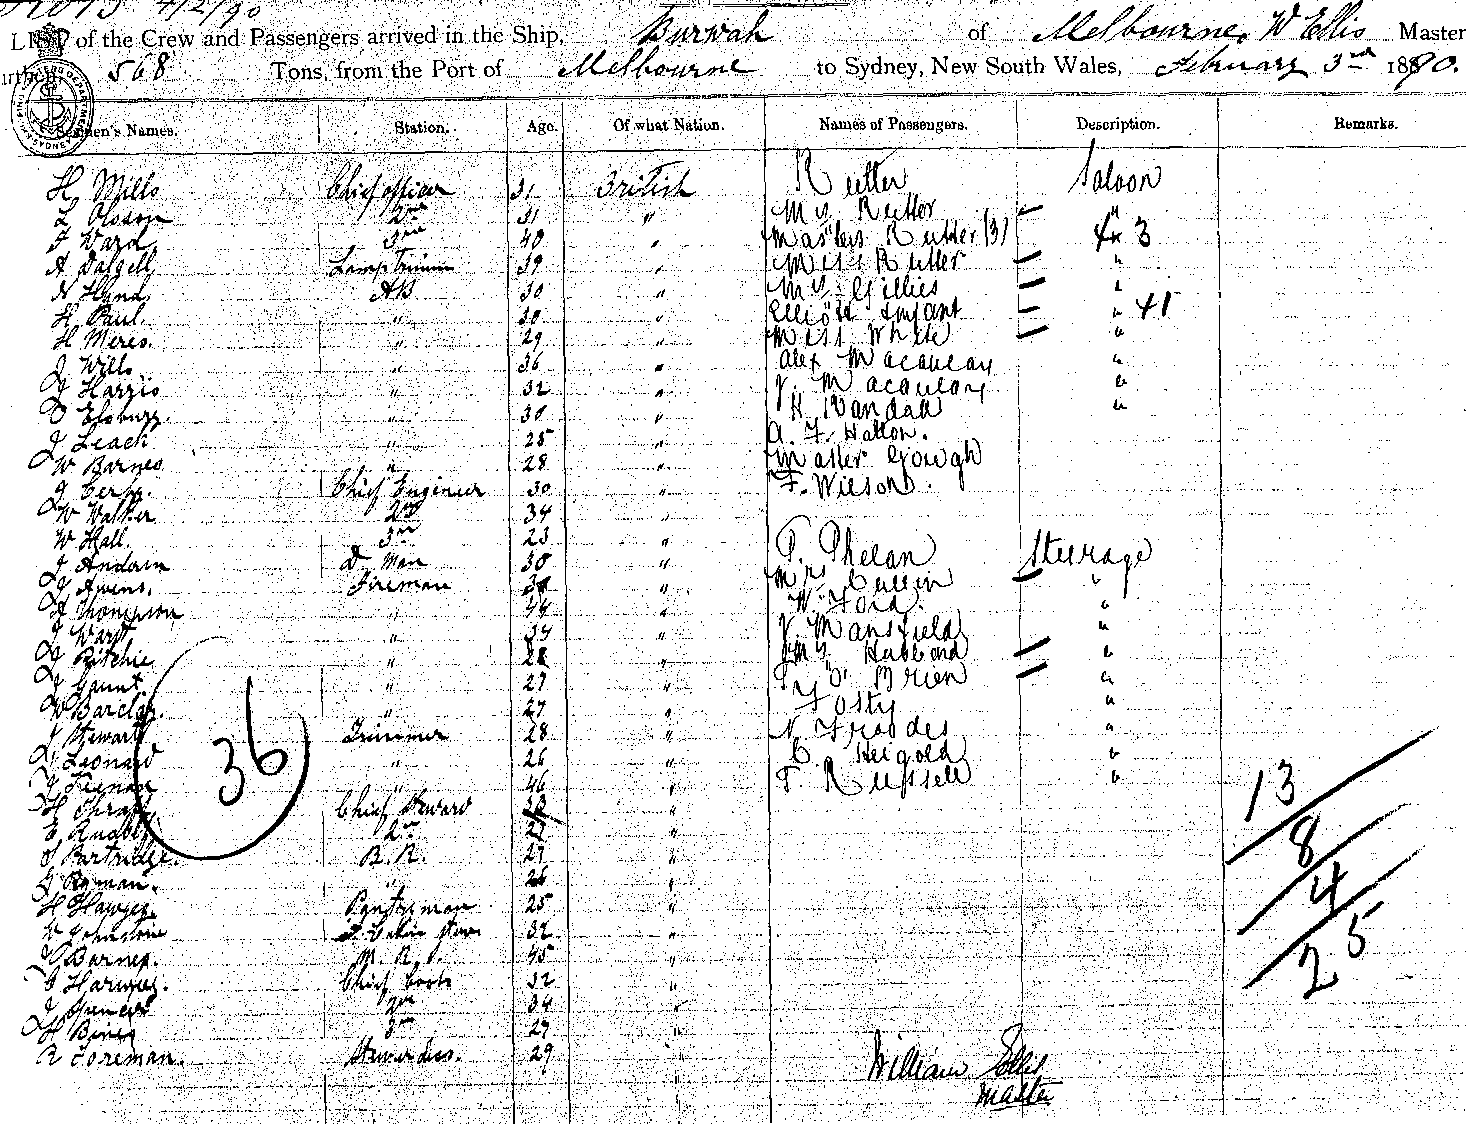 4/2/90
LIST of the Crew and Passengers arrived in the Ship, Burwah of Melbourne, W Ellis Master
Burthen 568 Tons, from the Port of Melbourne to Sydney, New South Wales, February 3rd 1890.
Seamen's Names. Station. Age. Of what Nation. Names of Passengers. Description. Remarks.
H Mills Chief officer 31 British Rutter Saloon
L Olsson 2nd 31 " Mrs Rutter "
F Ward 3rd 40 " Masters Rutter (3) 3
A Dalgell Lamp Trimm 39 " Miss Rutter "
H Hand AB 30 " Mrs Gillies "
H Paul. " 30 " Elliott Infant " +1
H Meres. " 29 " Miss White "
J Wills " 36 " Alex Macaulay "
J Harris " 32 " J. Macaulay "
" 30 " H. Randall "
J Leach " 25 " A. F. Hatton.
W Barnes " 28 " Master Gough
J Chief Engineer 30 " F. Wilson.
W Walker 2nd 34 "
W Hall. 3rd 23 "
J D Man 30 " P. Phelan Steerage
J Owens. Fireman " Mrs Cullen "
A Thompson " 44 " W. Ford. "
J " 34 " J. Mansfield "
J Ritchie " 28 " Mrs Hubbard "
J Gaunt " 27 " O'Brien "
W Barclay. " 27 " Fosty "
J Stewart Trimmer 28 " N. "
Leonard " 26 " C Heigold "
46 " T. Russell "
H Chief Steward "
E 2nd 27 "
S Partridge. B. R. 27 "
J 26 "
H Pantryman 25 "
W Johnstone 32 "
J Barnes. 45 "
Chief Cook 32 "
J Spencer 2nd 34 "
H 3rd 27 "
R Foreman. Stewardess. 29
36
13
8
4
25
William Ellis
Master